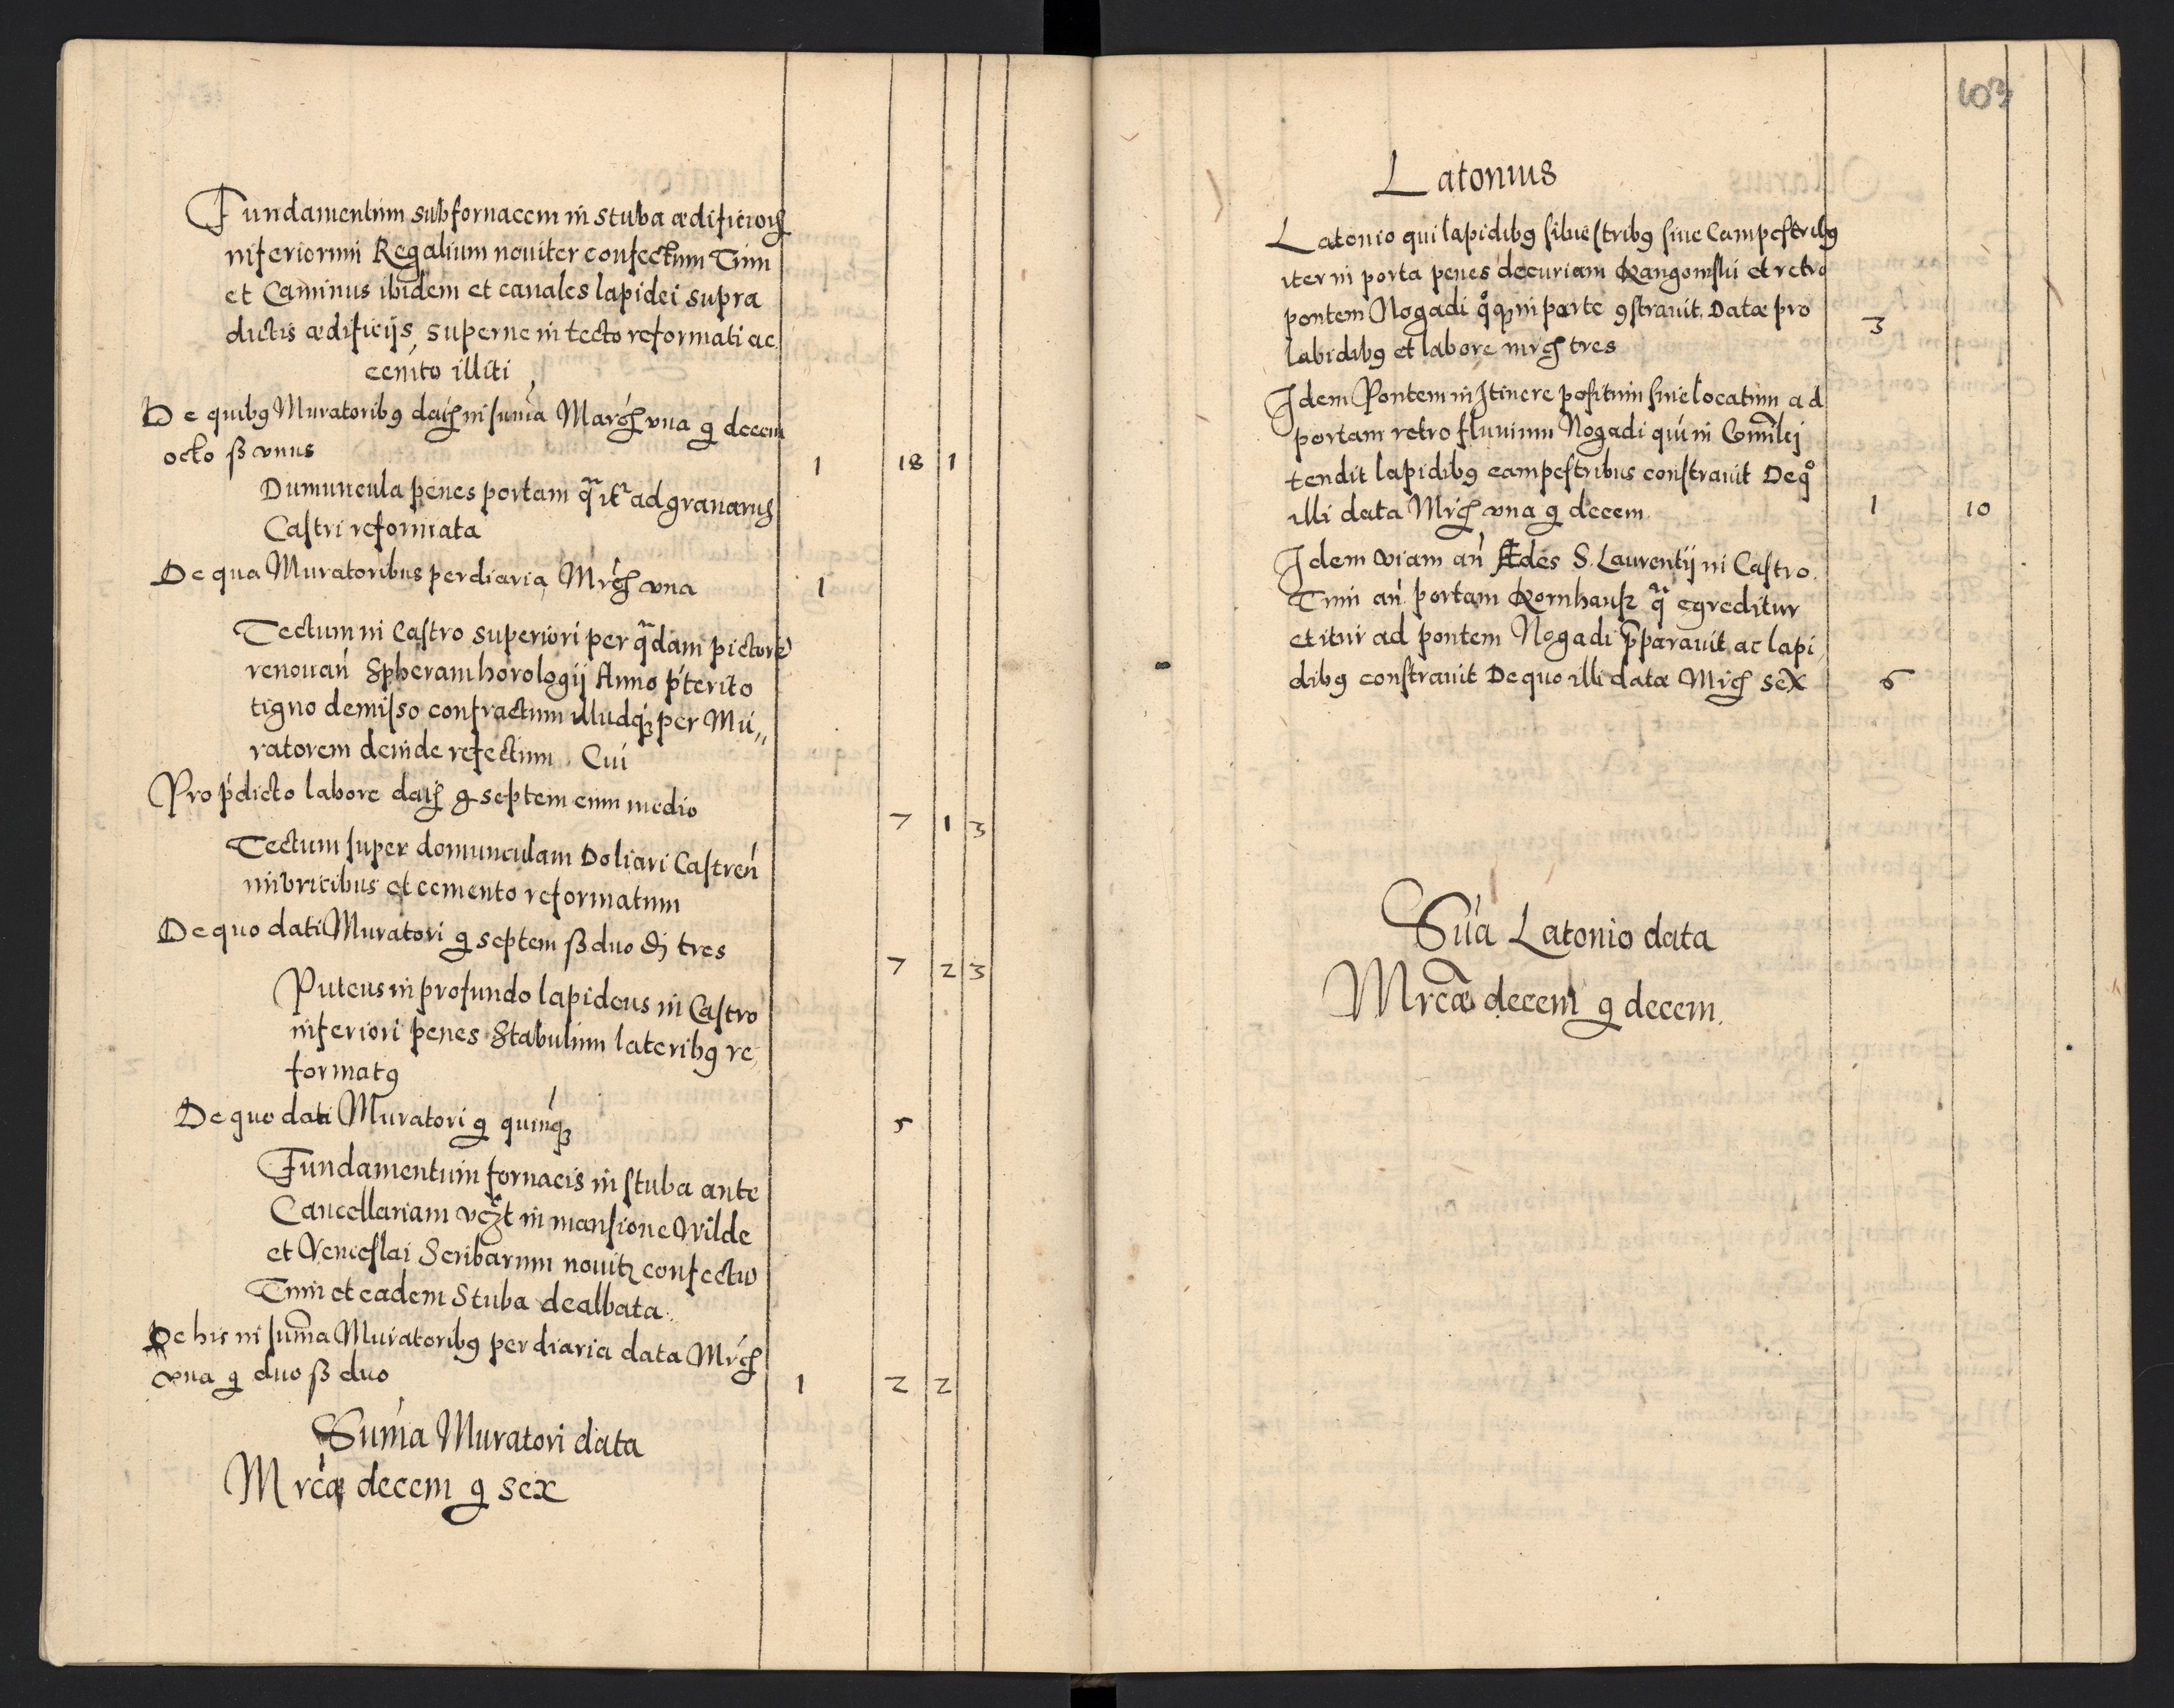 Fundamentum sub fornacem in stuba ædificiorų
inferiorum Regalium noviter confectum Tum
et Caminus ibidem et canales lapidei supra
dictis ædificijs, superne in tecto reformati ac
cemto illiti
De quibꝯ Muratoribꝯ datæ in suma Març una g decem
octo ß unus 1 18 1
Dumuncula penes portam qa itr ad granariuȝ
Castri reformata
De qua Muratoribus per diaria Mrç una 1
Tectum in Castro superiori per qdam pictorē
renovan Spheram horologij Anno p'terito
tigno demisso confractum illudqȝ per Mu„
ratorem deinde refectum. Cui
Pro p'dicto labore datȝ g septem cum medio 7 1 3
Tectum super domunculam Doliari Castren
imbricibus et cemento reformatum
De quo dati Muratori g septem ß duo đ tres 7 2 3
Puteus in profundo lapideus in Castro
inferiori penes Stabulum lateribꝯ re
formatꝯ
De quo dati Muratori g quinqȝ 5
Fundamentum fornacis in stuba ante
Cancellariam vczt in mansione Wilde
et Venceslai Scribarum novitr confectū
Tum et eadem Stuba dealbata.
De his in suma Muratoribꝯ per diaria data Mrç
una g duo ß duo 1 2 2
Suma Muratori data
Mrcæ decem g sex
103
Latonius
Latonio qui lapidibꝯ silvestribꝯ sive Campestribꝯ
iter in porta penes decuriam Rangowskii et retro
pontem Nogadi qoqȝ in parte ꝯstravit. Datæ pro
labidibꝯ et labore mrç tres 3
Idem Pontem in Itinere positum sive locatum ad
portam retro fluvium Nogadi qui in Comlej
tendit lapidibꝯ campestribus constravit De qo
illi data Mrç una g decem 1 10
Idem viam an Ædes S. Laurentij in Castro.
Tum an portam Kornhauß qa egreditur
et itur ad pontem Nogadi p̄paravit ac lapi
dibꝯ constravit De quo illi datæ Mrç sex 6
Sua Latonio data
Mrcæ decem g decem.